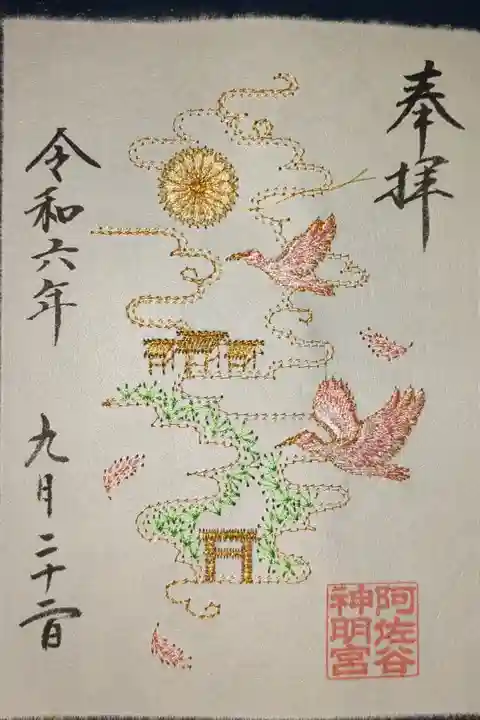 奉拝
阿佐谷
神明宮
令和六年
九月二十二日